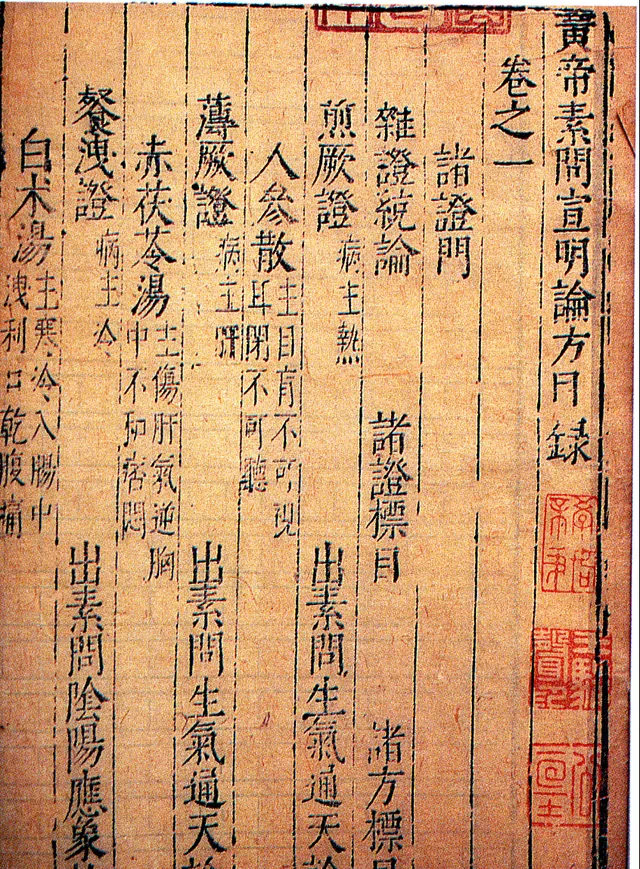 黃帝素問宣明論方目錄
卷之一
諸證門
雜證統論 諸證標目 諸方標目
煎厥證 病主熱 出素問生氣通天
人參散 主目有不可視
耳閉不可聽
薄厥證 病主肝 出素問生氣通天
赤茯苓湯 主傷肝氣逆胸
中不和痞悶
餐洩證 病主冷 出素問陰陽應象
白朮湯 主寒冷入腸中
洩利口乾腹痛